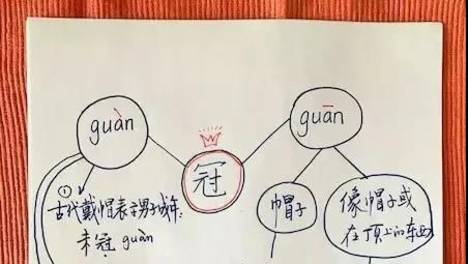 guàn
guān
冠
①
古代戴帽表示男子成年.
未冠 guàn
帽子
像帽子或
在顶上的东西